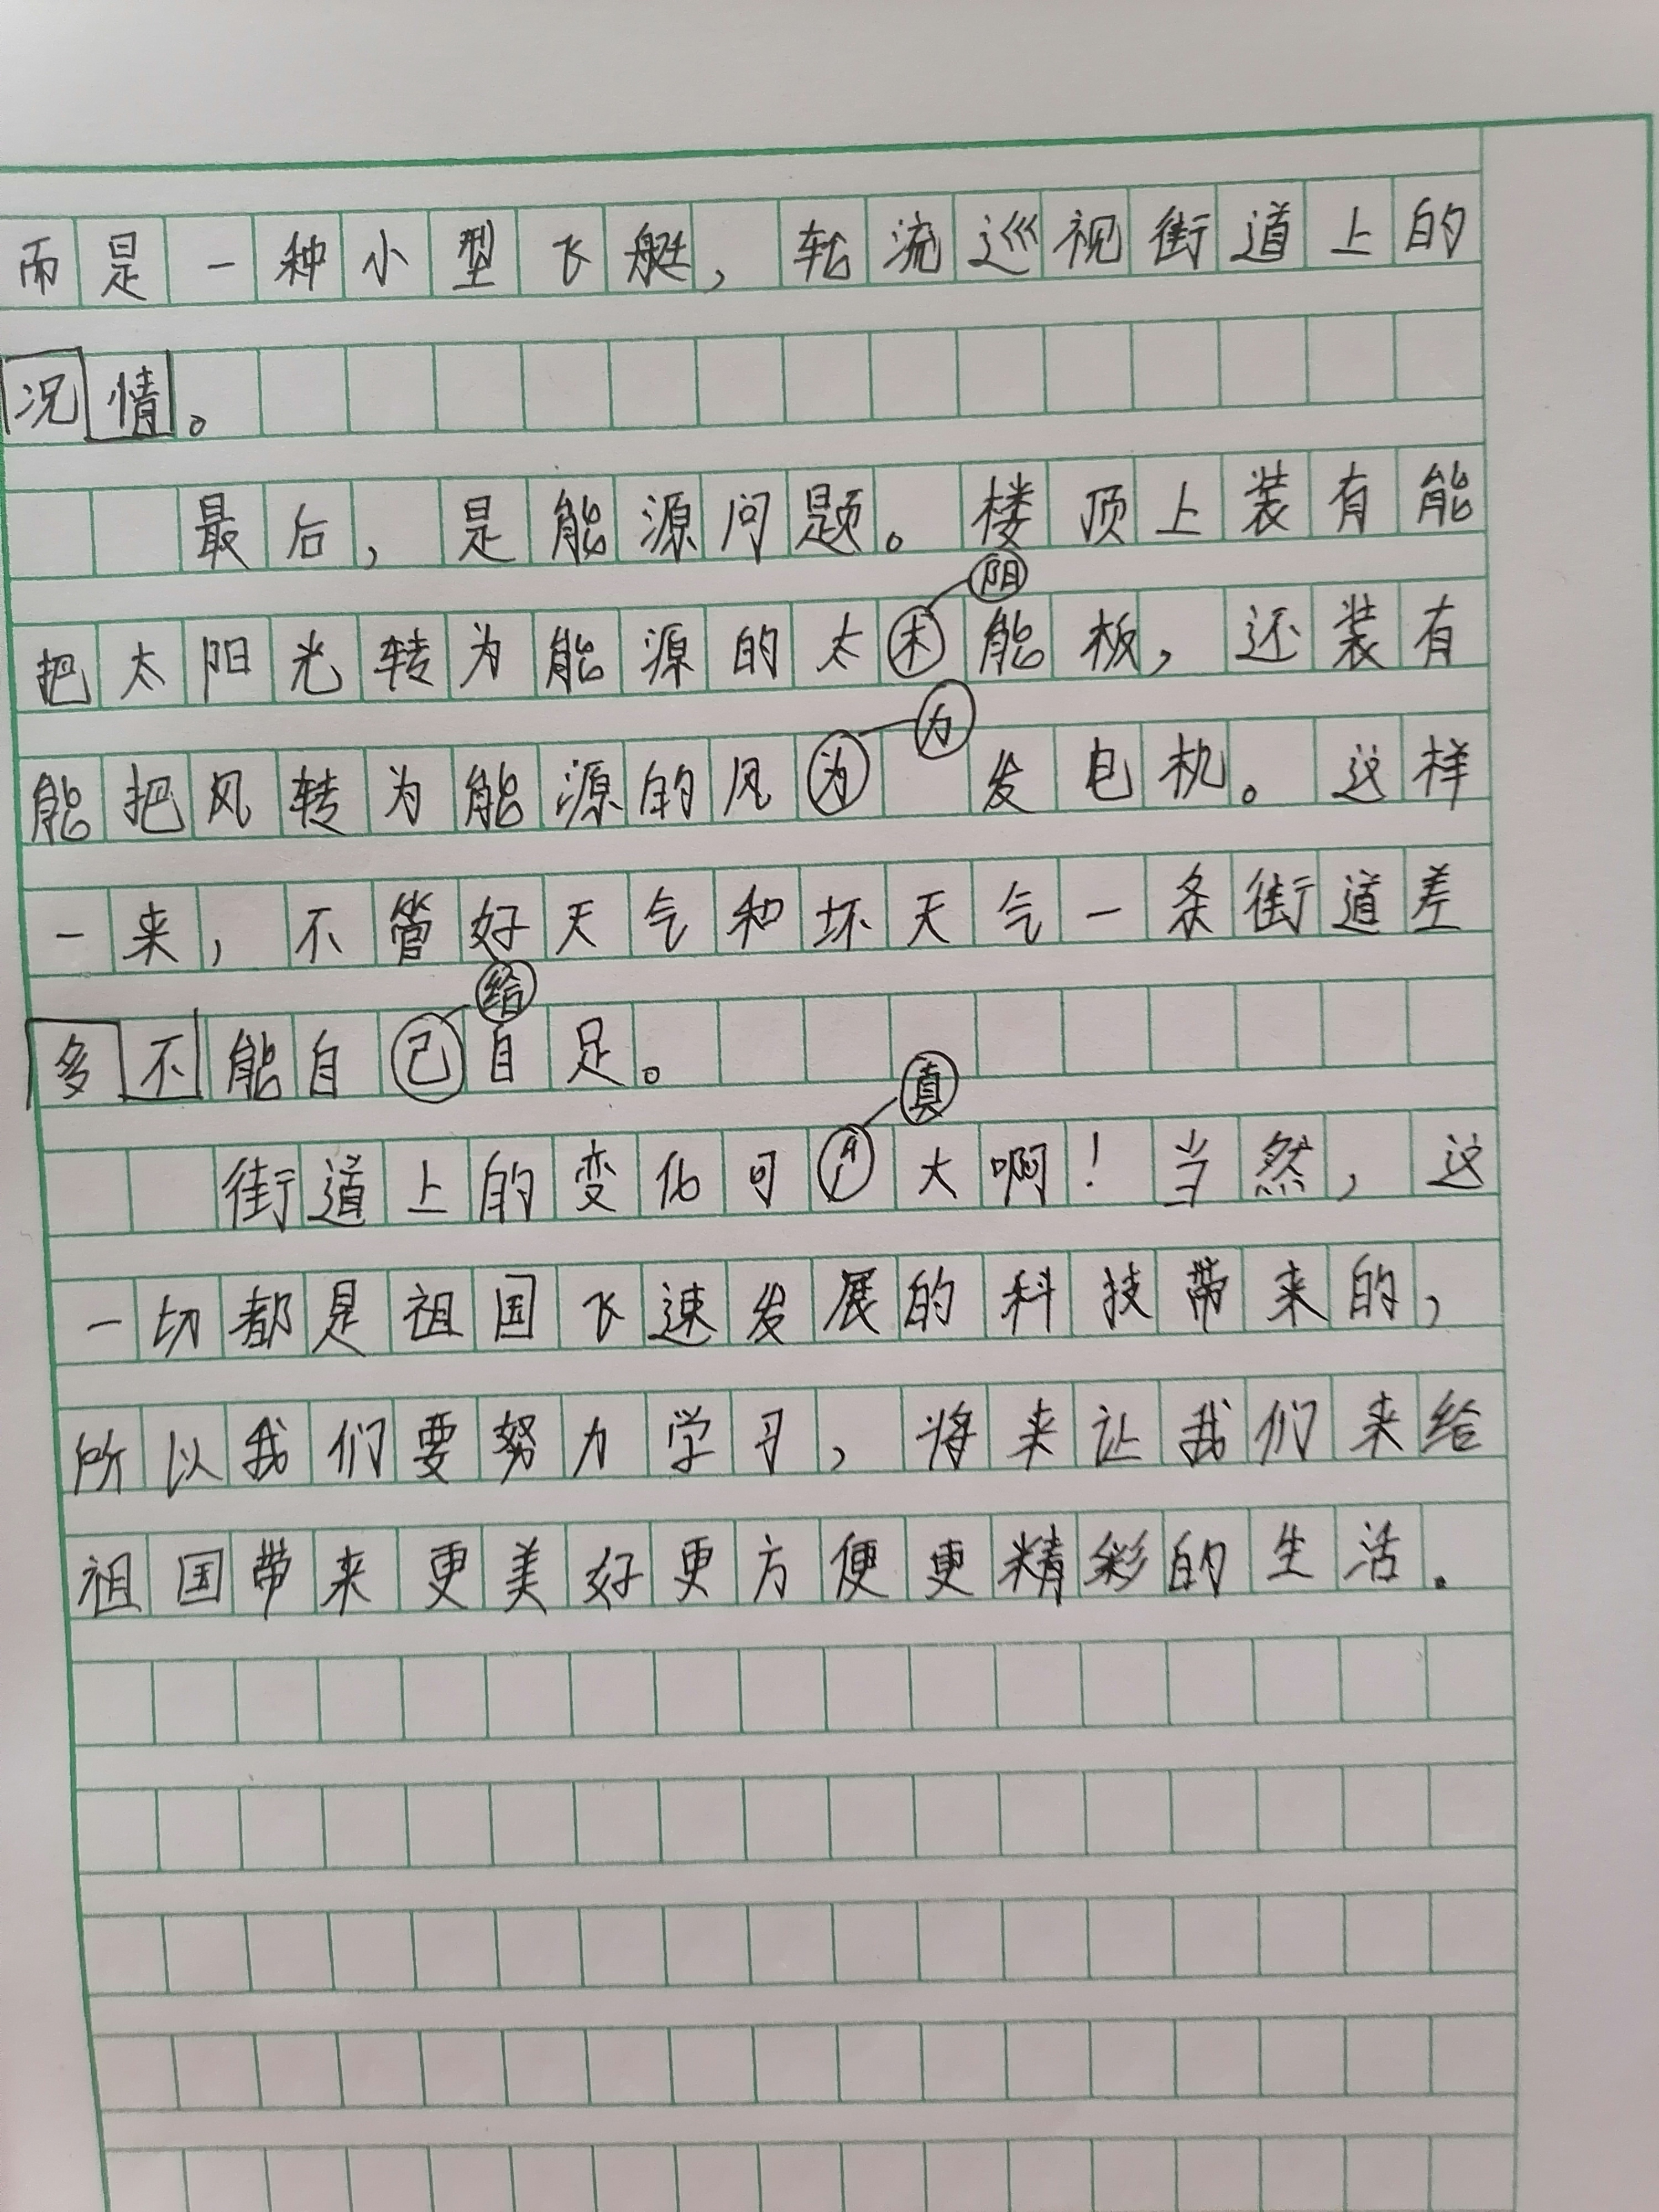 而是一种小型飞艇，轮流巡视街道上的
况情。
最后，是能源问题。楼顶上装有能
阳
把太阳光转为能源的太木能板，还装有
力
能把风转为能源的风为发电机。这样
一来，不管好天气和坏天气一条街道差
给
多不能自己自足。
真
街道上的变化可大啊！当然，这
一切都是祖国飞速发展的科技带来的，
所以我们要努力学习，将来让我们来给
祖国带来更美好更方便更精彩的生活.